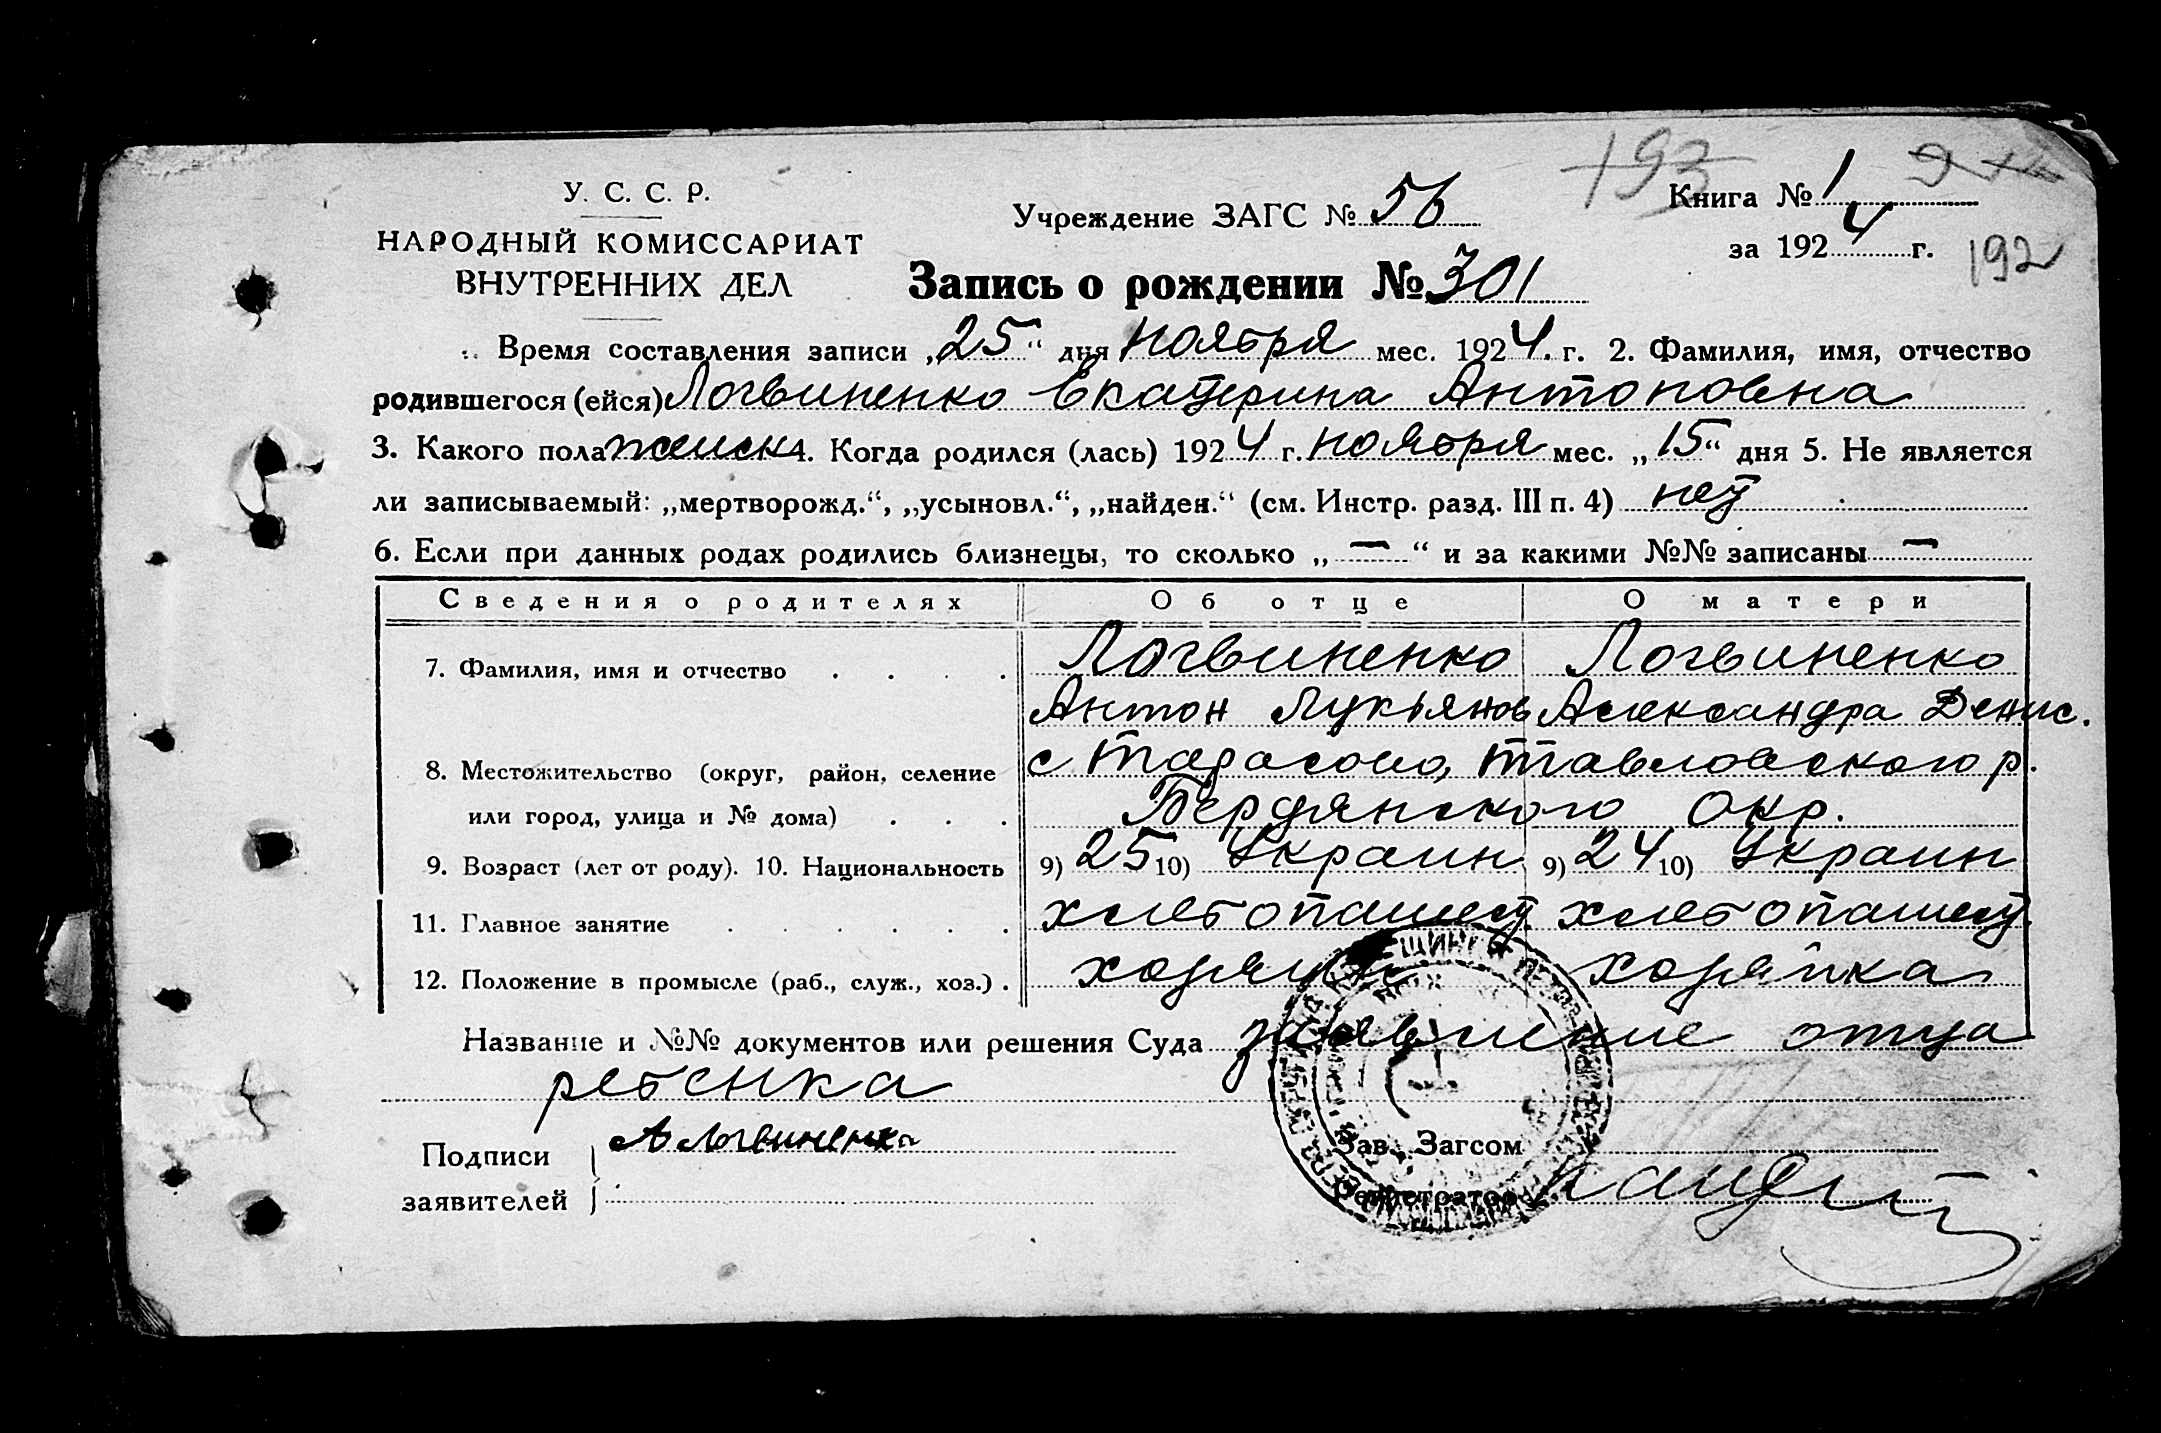 193
У. С. С. Р.
НАРОДНЫЙ КОМИССАРИАТ
ВНУТРЕННИХ ДЕЛ
Учреждение ЗАГС № 56
Книга № 1
за 1924 г.
192
Запись о рождении № 301
Время составления записи „25“ дня ноября мес. 1924. г. 2. Фамилия, имя, отчество
родившегося (ейся) Логвиненко Екатерина Антоновна
3. Какого пола женск 4. Когда родился (лась) 1924 г. ноября мес. „15“ дня 5. Не является
ли записываемый: „мертворожд.“, „усыновл.“, „найден.“ (см. Инстр. разд. III п. 4) нет
6. Если при данных родах родились близнецы, то сколько „—“ и за какими №№ записаны —
Сведения о родителях Об отце О матери
7. Фамилия, имя и отчество . . . . Логвиненко Логвиненко
Антон Лукьянов Александра Денис.
8. Местожительство (округ, район, селение с р.
или город, улица и № дома) . . . Бердянского окр.
9. Возраст (лет от роду). 10. Национальность 9) 25 10) Украин 9) 24 10) Украин
11. Главное занятие . . . . . . хлебопашец хлебопашец
12. Положение в промысле (раб., служ., хоз.) . хозяин хозяйка
Название и №№ документов или решения Суда заявление отца
ребенка
Подписи заявителей
А Логвиненко
Зав. Загсом
Регистратор